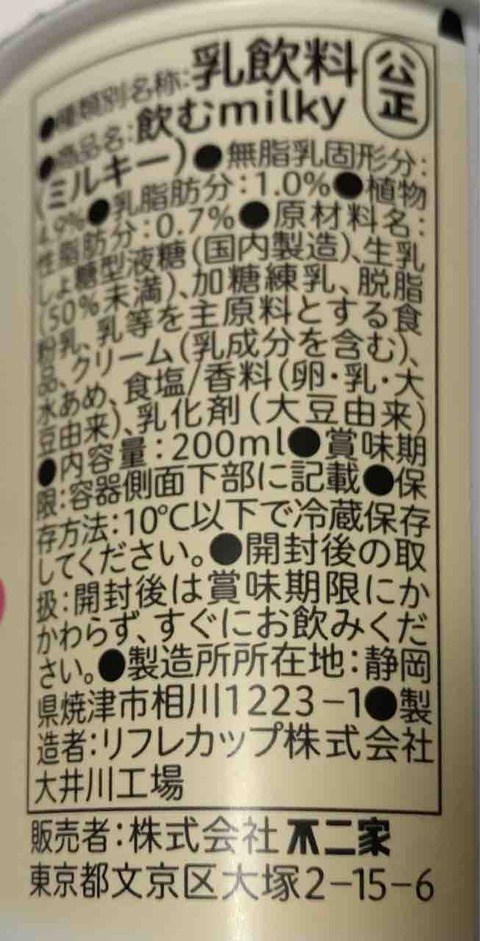 ●種類別名称:乳飲料 公正
●商品名:飲むmilky
(ミルキー)●無脂乳固形分:
4.9%●乳脂肪分:1.0%●植物
性脂肪分:0.7%●原材料名:
しょ糖型液糖(国内製造)、生乳
(50%未満)、加糖練乳、脱脂
粉乳、乳等を主原料とする食
品、クリーム(乳成分を含む)、
水あめ、食塩/香料(卵・乳・大
豆由来)、乳化剤(大豆由来)
●内容量:200ml●賞味期
限:容器側面下部に記載●保
存方法:10℃以下で冷蔵保存
してください。●開封後の取
扱:開封後は賞味期限にか
かわらず、すぐにお飲みくだ
さい。●製造所所在地:静岡
県焼津市相川1223-1●製
造者:リフレカップ株式会社
大井川工場
販売者:株式会社不二家
東京都文京区大塚2-15-6